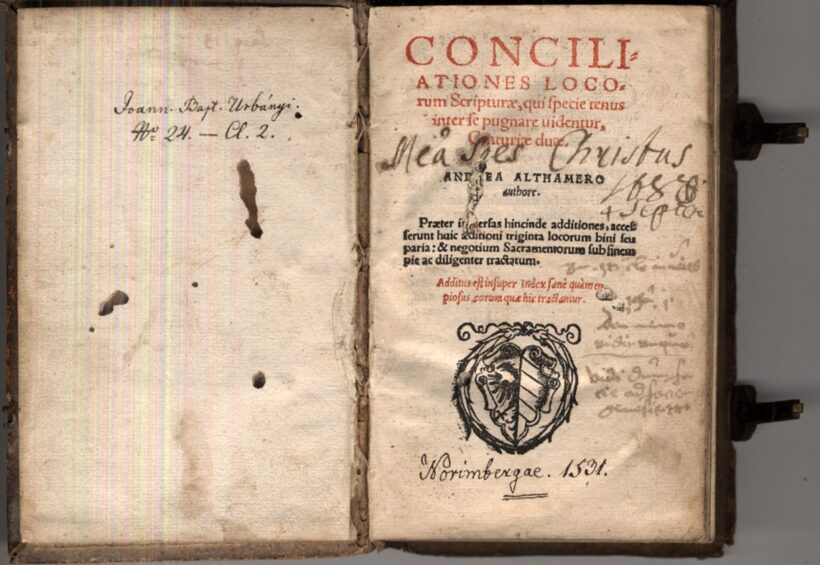 Joann. Bapt. Urbányi.
No 24. — Cl. 2.
CONCILI-
ATIONES LOCO-
rum Scripturæ, qui specie tenus
inter se pugnare uidentur,
Centuriæ duæ.
Meâ Spes Christus
ANDREA ALTHAMERO
authore.
4 Septe
Præter inuersas hincinde additiones, acces
serunt huic æditioni triginta locorum bini seu
paria: & negotium Sacramentorum sub finem
pie ac diligenter tractatum.
Additus est insuper Index sanè quàm co-
piosus eorum quæ hic tractantur.
Norimbergae. 1531.